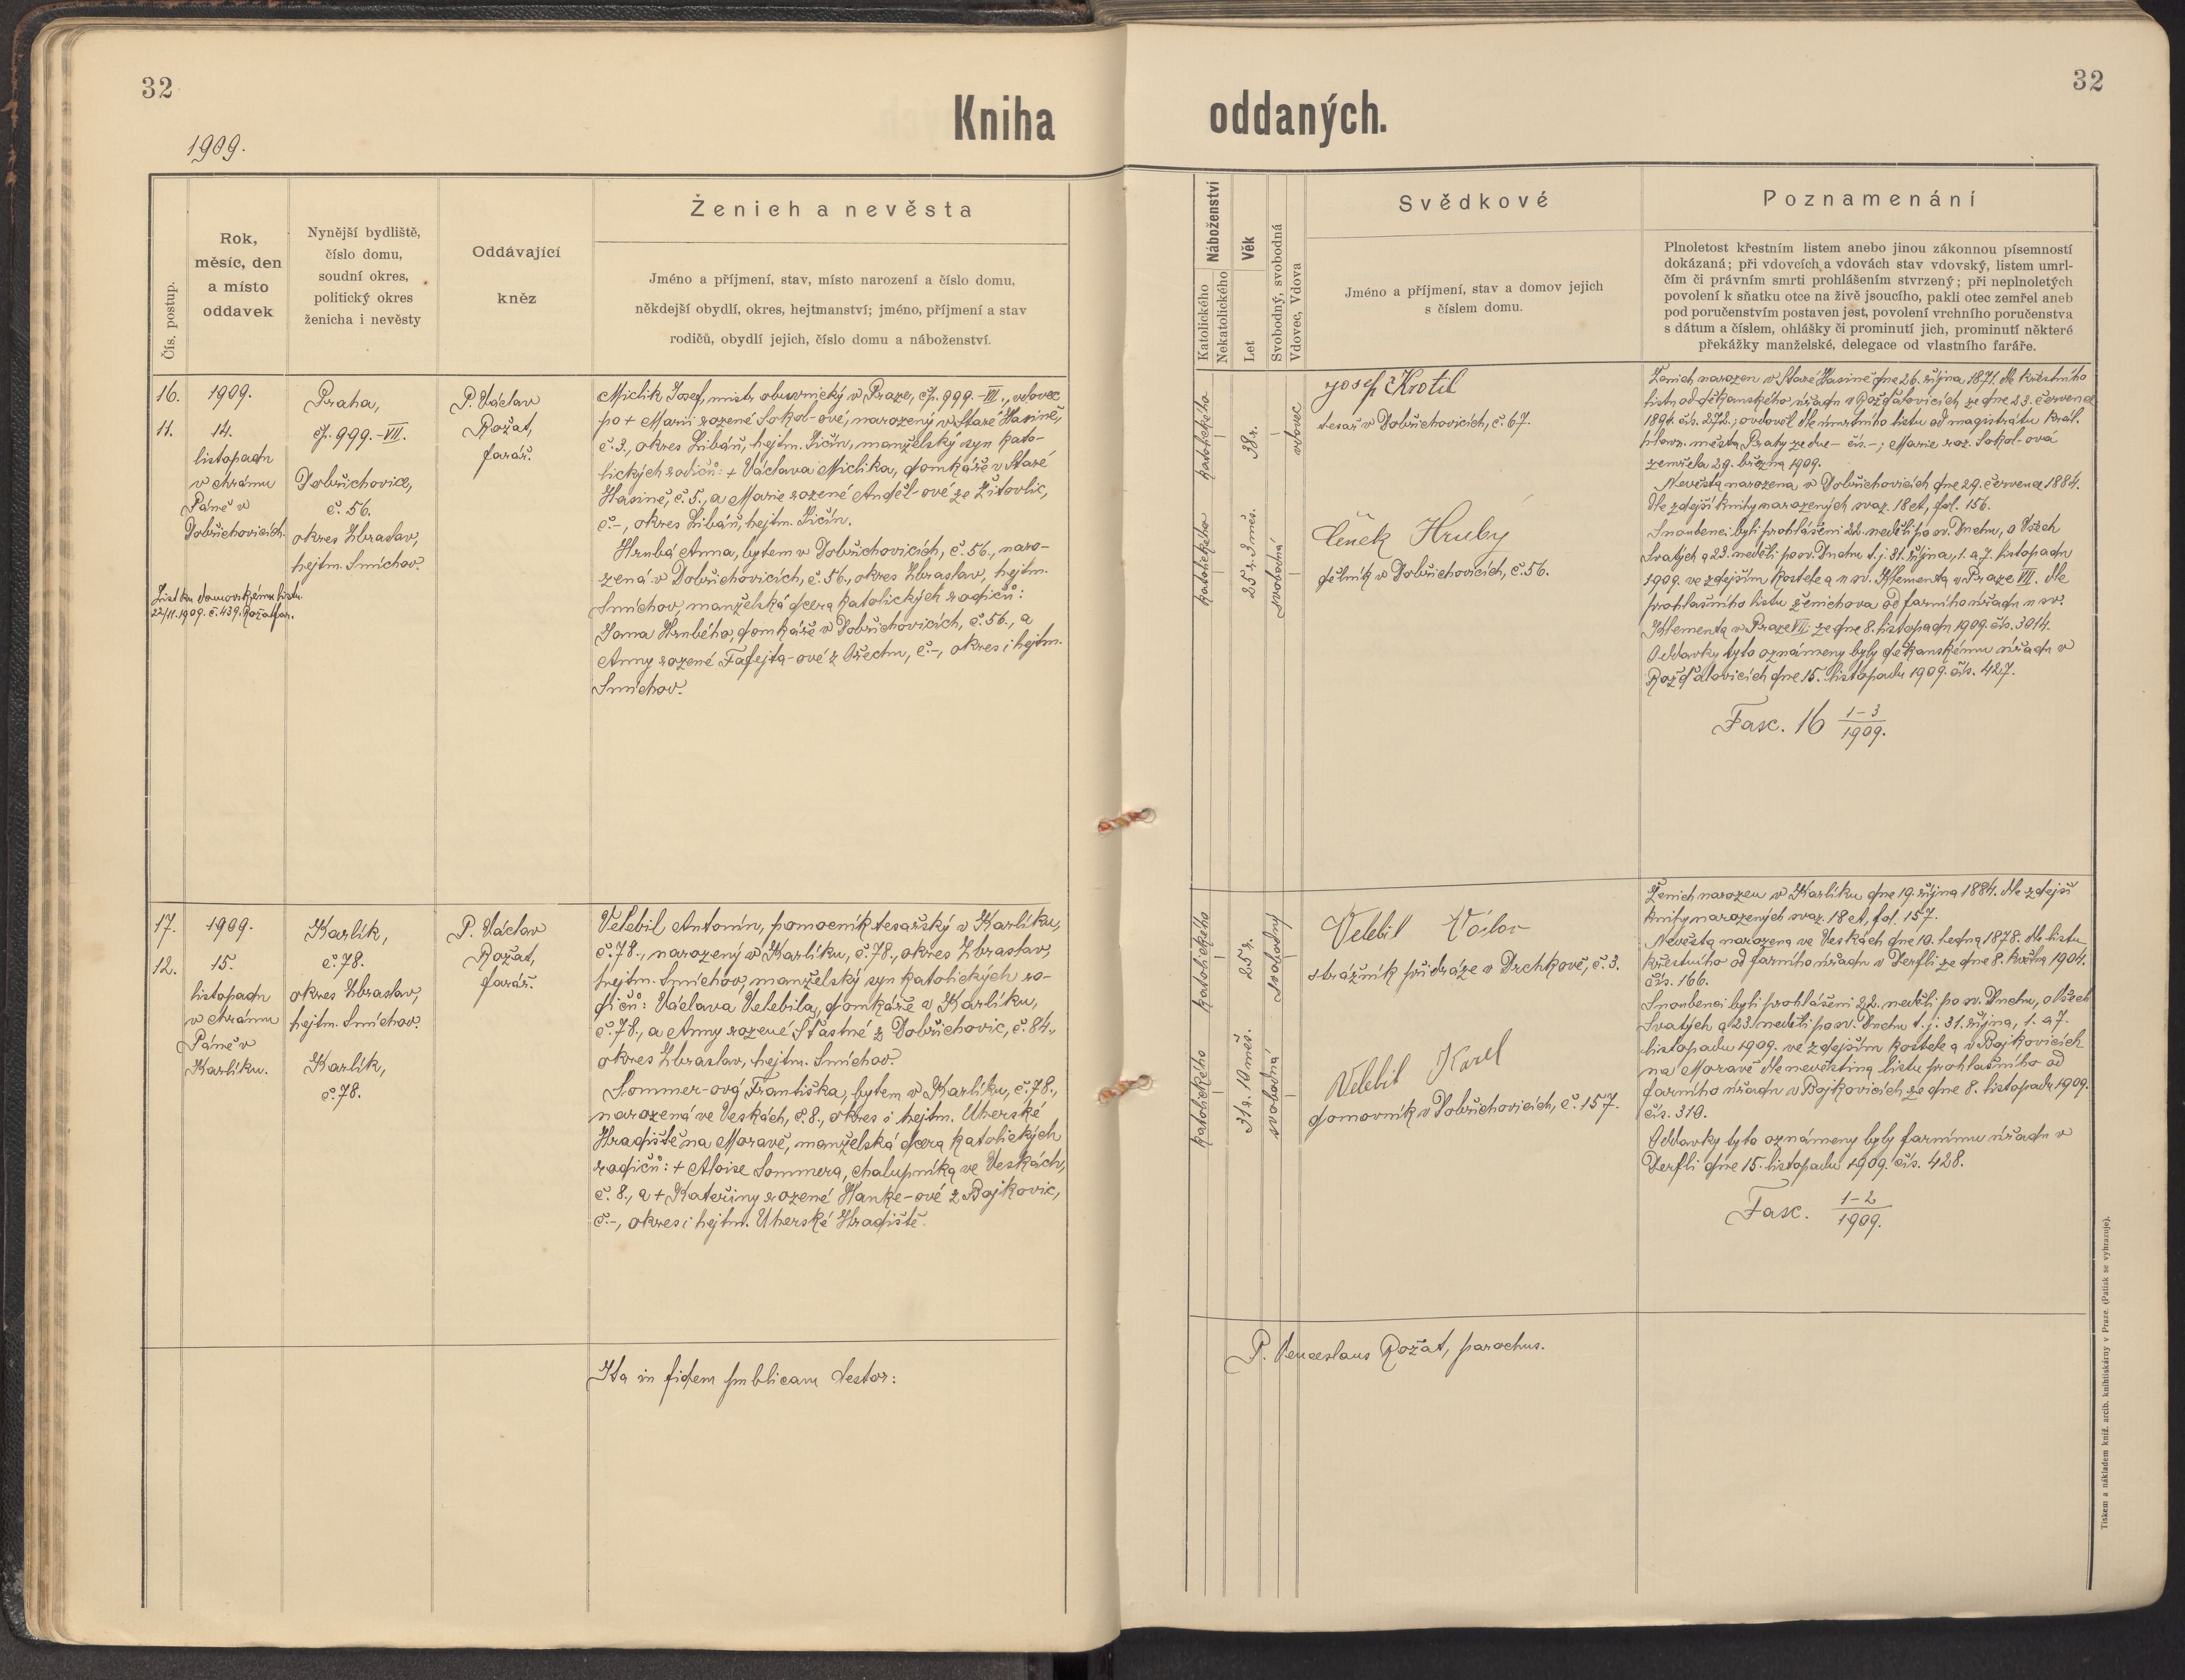 32
32
Kniha oddaných.
1909.
Čís. postup.
Rok,
měsíc, den
a místo
oddavek
Nynější bydliště,
číslo domu,
soudní okres,
politický okres
ženicha i nevěsty
Oddávající
kněz
Ženich a nevěsta
Jméno a příjmení, stav, místo narození a číslo domu,
někdejší obydlí, okres, hejtmanství; jméno, příjmení a stav
rodičů, obydlí jejich, číslo domu a náboženství.
Náboženství
Katolického
Nekatolického
Věk
Let
Svobodný, svobodná
Vdovec, Vdova
Svědkové
Jméno a příjmení, stav a domov jejich
s číslem domu.
Poznamenání
Plnoletost křestním listem anebo jinou zákonnou písemností
dokázaná; při vdovcích a vdovách stav vdovský, listem umrl-
čím či právním smrti prohlášením stvrzený; při neplnoletých
povolení k sňatku otce na živě jsoucího, pakli otec zemřel aneb
pod poručenstvím postaven jest, povolení vrchního poručenstva
s dátum a číslem, ohlášky či prominutí jich, prominutí některé
překážky manželské, delegace od vlastního faráře.
16.
11.
1909.
14.
listopadu
v chrámu
Páně v
Dobřichovicích.
List ku domovskému listu
22/11.1909. č.439. Rožat far.
Praha,
čp. 999.-VII.
Dobřichovice,
č. 56.
okres Zbraslav,
hejtm. Smíchov.
P. Václav
Rožat,
farář.
Miclik Josef, mistr obuvnický v Praze, čp. 999.-VII., vdovec
po + Marii rozené Sokol-ové, narozený v Staré Hasině,
č. 3., okres Libáň, hejtm. Jičín, manželský syn kato-
lických rodičů: + Václava Miclika, domkáře v Staré
Hasině, č. 5., a Marie rozené Anděl-ové ze Žitovlic,
č.-, okres Libáň, hejtm. Jičín.
Hrubá Anna, bytem v Dobřichovicích, č. 56., naro-
zená v Dobřichovicích, č. 56., okres Zbraslav, hejtm.
Smíchov, manželská dcera katolických rodičů:
Jana Hrubého, domkáře v Dobřichovicích, č. 56., a
Anny rozené Fafejta-ové z Ořechu, č.-, okres i hejtm.
Smíchov.
katolického
38 r.
vdovec
katolického
25 r. 3 měs.
svobodná
Josef Krotil
tesař v Dobřichovicích, č. 67.
Čeněk Hrubý
dělník v Dobřichovicích, č. 56.
Ženich narozen v Staré Hasině dne 26. října 1871. dle křestního
listu od děkanského úřadu v Rožďalovicích ze dne 23. července
1894. čís. 272.; ovdověl dle úmrtního listu od magistrátu král.
hlavn. města Prahy ze dne - čís. -; Marie roz. Sokol-ová
zemřela 29. března 1909.
Nevěsta narozena v Dobřichovicích dne 29. července 1884.
dle zdejší knihy narozených svaz. 18 et, fol. 156.
Snoubenci byli prohlášeni 22. neděli po sv. Duchu, o Všech
Svatých a 23. neděli po sv. Duchu t. j. 31. října, 1. a 7. listopadu
1909. ve zdejším kostele a u sv. Klementa v Praze VII. dle
prohlašního listu ženichova od farního úřadu u sv.
Klementa v Praze VII. ze dne 8. listopadu 1909. čís. 3014.
Oddavky tyto oznámeny byly děkanskému úřadu v
Rožďalovicích dne 15. listopadu 1909. čís. 427.
Fasc. 16 1-3/1909.
17.
12.
1909.
15.
listopadu
v chrámu
Páně v
Karlíku.
Karlík,
č. 78.
okres Zbraslav,
hejtm. Smíchov.
Karlík,
č. 78.
P. Václav
Rožat,
farář.
Velebil Antonín, pomocník tesařský v Karlíku,
č. 78., narozený v Karlíku, č. 78., okres Zbraslav,
hejtm. Smíchov, manželský syn katolických ro-
dičů: Václava Velebila, domkáře v Karlíku,
č. 78., a Anny rozené Šťastné z Dobřichovic, č. 84.,
okres Zbraslav, hejtm. Smíchov.
Sommer-ová Františka, bytem v Karlíku, č. 78.,
narozená ve Veskách, č. 8., okres i hejtm. Uherské
Hradiště na Moravě, manželská dcera katolických
rodičů: + Aloise Sommera, chalupníka ve Veskách,
č. 8., a + Kateřiny rozené Hanke-ové z Bojkovic,
č.-, okres i hejtm. Uherské Hradiště.
katolického
25 r.
svobodný
katolického
31 r. 10 měs.
svobodná
Velebil Václav
strážník při dráze v Drchkově, č. 3.
Velebil Karel
domovník v Dobřichovicích, č. 157.
Ženich narozen v Karlíku dne 19. října 1884. dle zdejší
knihy narozených svaz. 18 et, fol. 157.
Nevěsta narozena ve Veskách dne 10. ledna 1878. dle listu
křestního od farního úřadu v Derfli ze dne 8. května 1904.
čís. 166.
Snoubenci byli prohlášeni 22. neděli po sv. Duchu, o Všech
Svatých a 23. neděli po sv. Duchu t. j. 31. října, 1. a 7.
listopadu 1909. ve zdejším kostele a v Bojkovicích
na Moravě dle nevěstina listu prohlašního od
farního úřadu v Bojkovicích ze dne 8. listopadu 1909.
čís. 310.
Oddavky tyto oznámeny byly farnímu úřadu v
Derfli dne 15. listopadu 1909. čís. 428.
Fasc. 1-2/1909.
Ita in fidem publicam testor:
P. Venceslaus Rožat, parochus.
Tiskem a nákladem kníž. arcib. knihtiskárny v Praze. (Patisk se vyhrazuje).